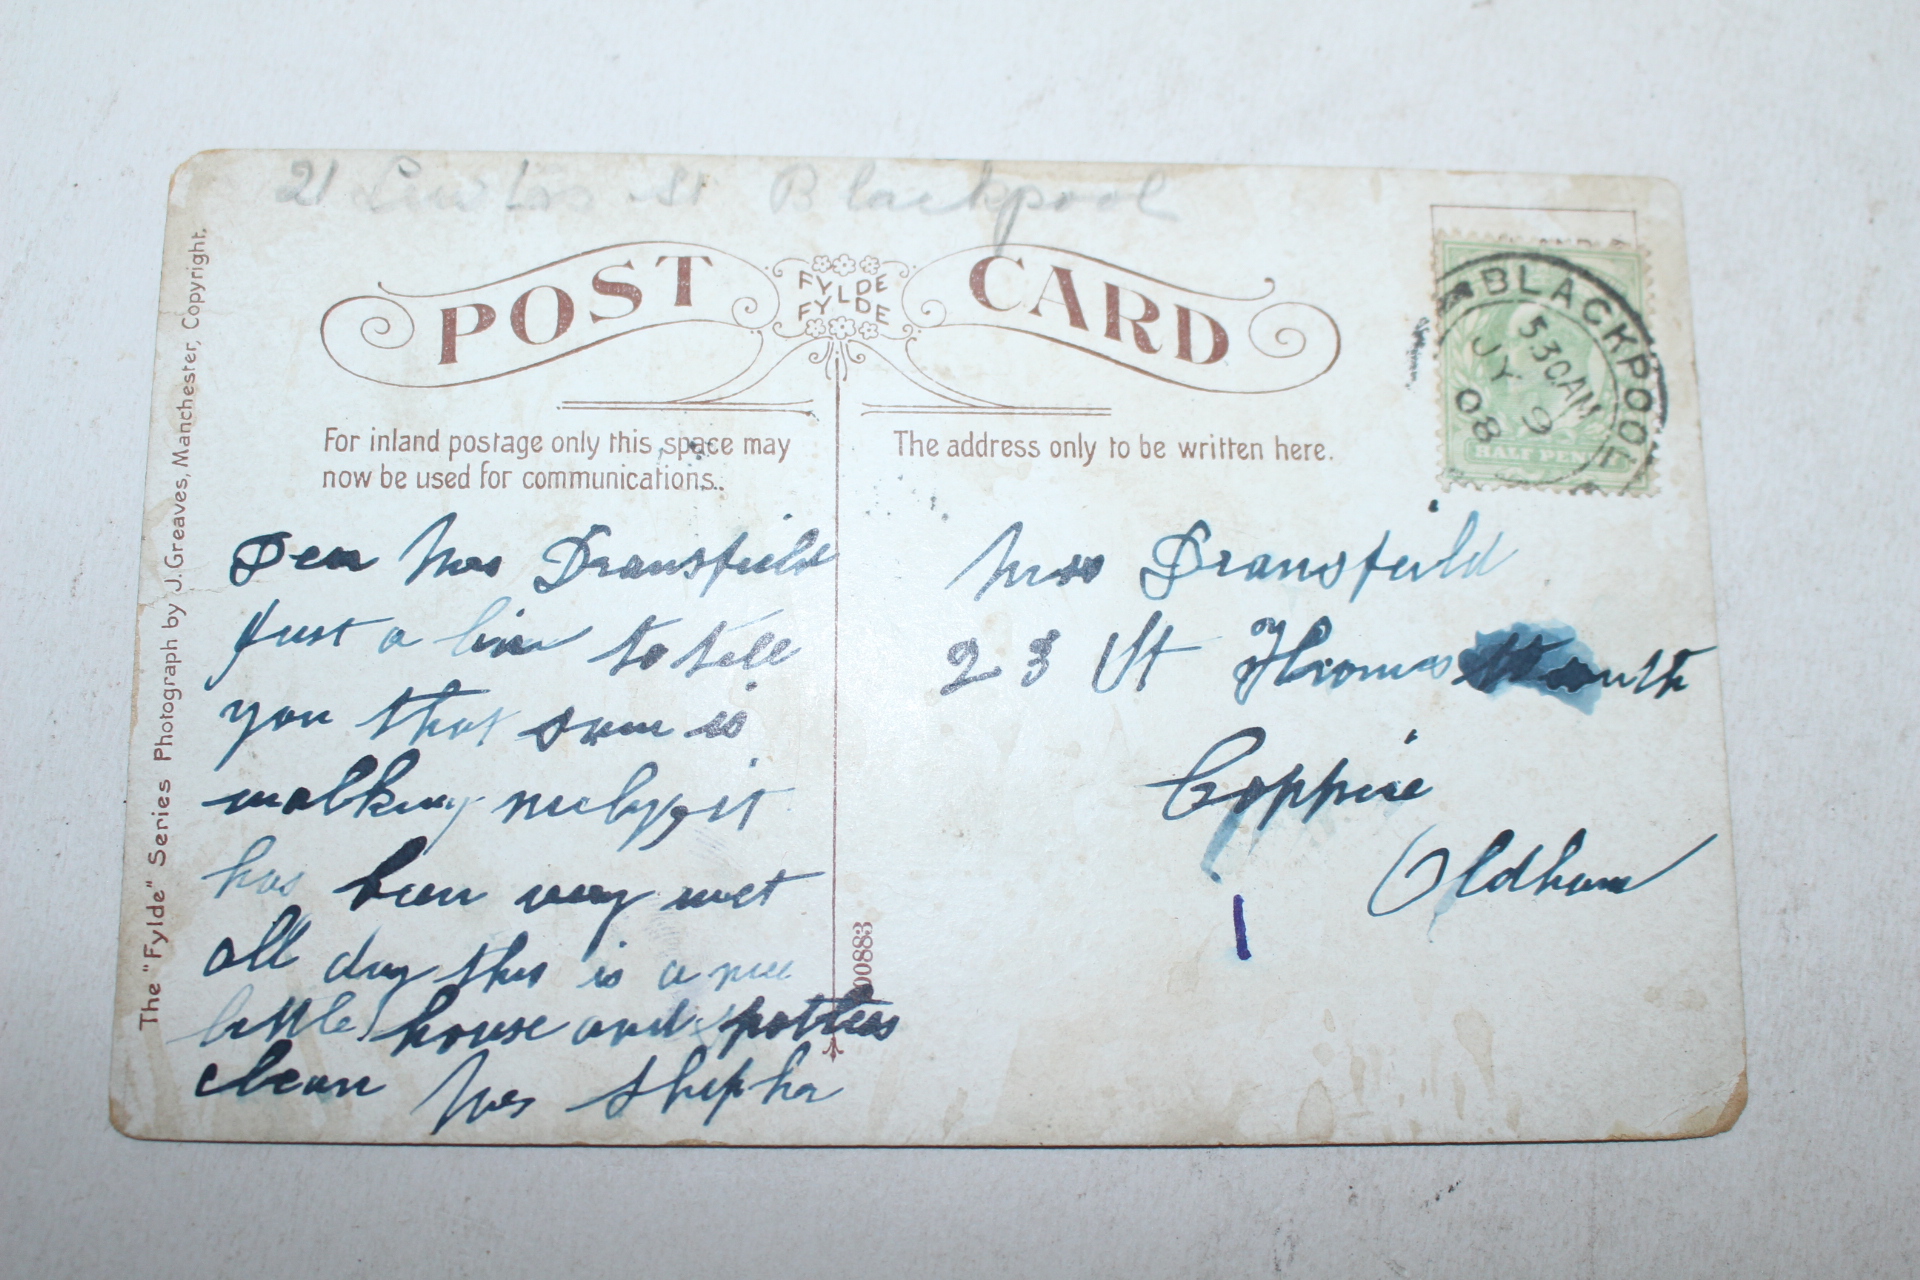 21 St Blackpool
POST CARD
FYLDE
FYLDE
For inland postage only this space may
now be used for communications.
The address only to be written here.
BLACKPOOL
5 30 AM
JY 9
08
HALF PENNY
Dear Mrs Dransfield
Just a line to tell
you that is
walking it
has been very wet
all day this is a nice
little house and spotless
clean Mrs
Mrs Dransfield
23 St Thomas
Coppice
Oldham
The "Fylde" Series Photograph by J. Greaves, Manchester, Copyright.
00883